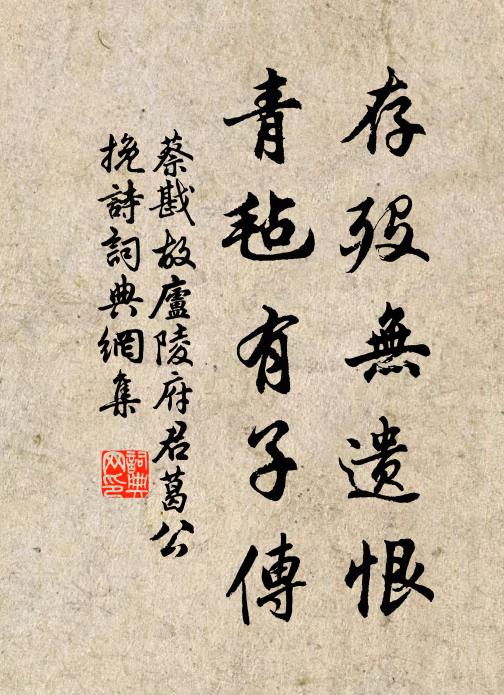 存歿無遺恨
青氈有子傳
蔡戡故廬陵府君葛公
挽詩詞典網集
詞典
网印